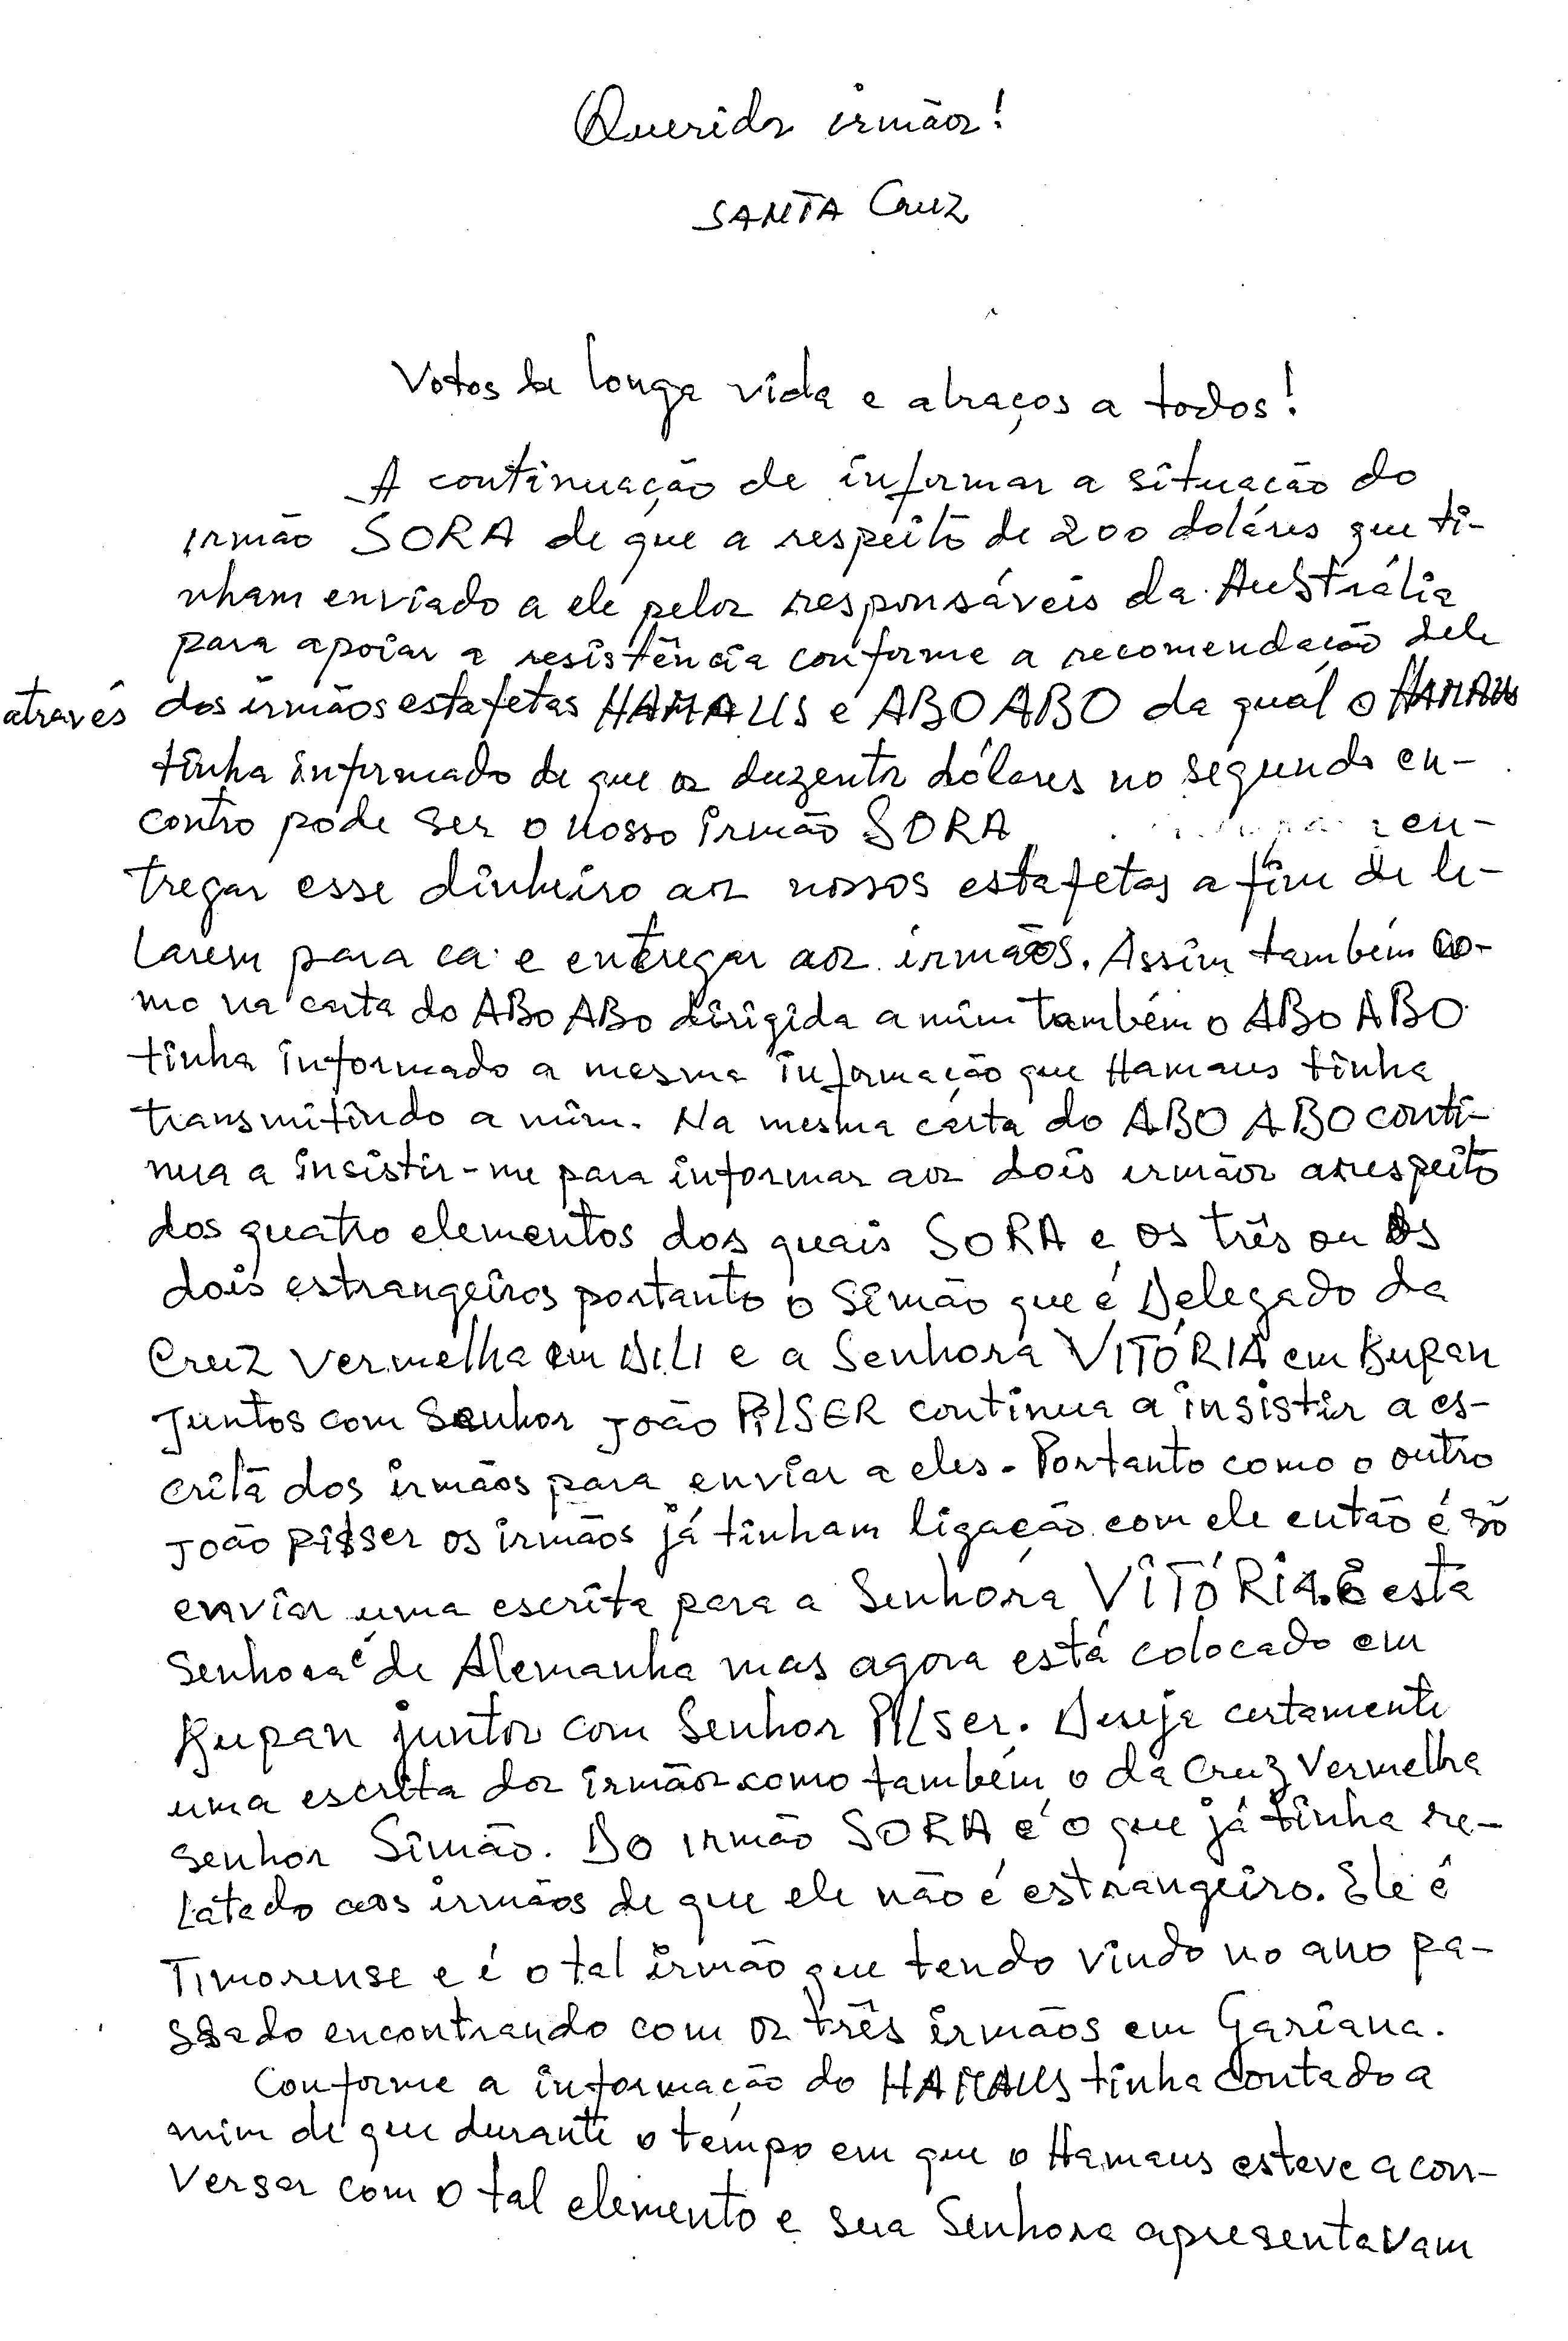 Querido irmãos!
SANTA Cruz
Votos de longa vida e abraços a todos!
A continuação de informar a situação do
irmão SORA de que a respeito de 200 doláres que ti-
nham enviado a ele pelos responsáveis da Austrália
para apoiar a resistência conforme a recomendação dele
através dos irmãos estafetas HAMAUS e ABO ABO da qual o HAMAUS
tinha informado de que os duzentos dólares no segundo en-
contro pode ser o nosso irmão SORA en-
tregar esse dinheiro aos nossos estafetas a fim de le-
varem para ca e entregar aos irmãos. Assim também co-
mo na carta do ABO ABO dirigida a mim também o ABO ABO
tinha informado a mesma informação que Hamaus tinha
transmitindo a mim. Na mesma carta do ABO ABO conti-
nua a insistir-me para informar aos dois irmãos a respeito
dos quatro elementos dos quais SORA e os três ou os
dois estrangeiros portanto o Simão que é Delegado da
Cruz Vermelha em DILI e a Senhora VITÓRIA em Kupan
Juntos com Senhor João PILSER continua a insistir a es-
crita dos irmãos para enviar a eles. Portanto como o outro
João pilser os irmãos já tinham ligação com ele então é só
enviar uma escrita para a Senhora VITÓRIA. E esta
Senhora é de Alemanha mas agora está colocado em
Kupan juntos com Senhor PILser. Deseja certamente
uma escrita dos irmãos como também o da Cruz Vermelha
senhor Simão. Do irmão SORA é o que já tinha re-
latado aos irmãos de que ele não é estrangeiro. Ele é
Timorense e é o tal irmão que tendo vindo no ano pa-
ssado encontrando com os três irmãos em Gariana.
Conforme a informação do HAMAUS tinha contado a
mim de que durante o tempo em que o Hamaus esteve a con-
versar com o tal elemento e sua Senhora apresentavam